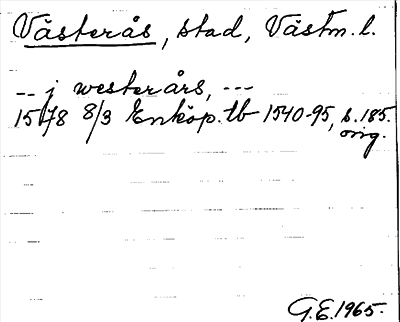 Västerås, stad, Västm. l.
-- j westerårs, ---
1578 8/3 Enköp. tb 1540-95, s. 185.
orig.
G.E. 1965.